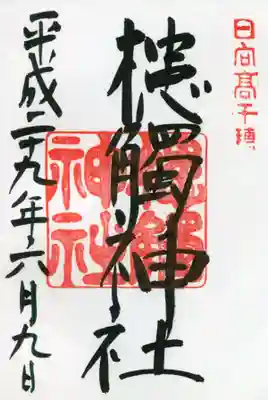 日向高千穂
槵觸神社
平成二十九年六月九日
槵觸
神社